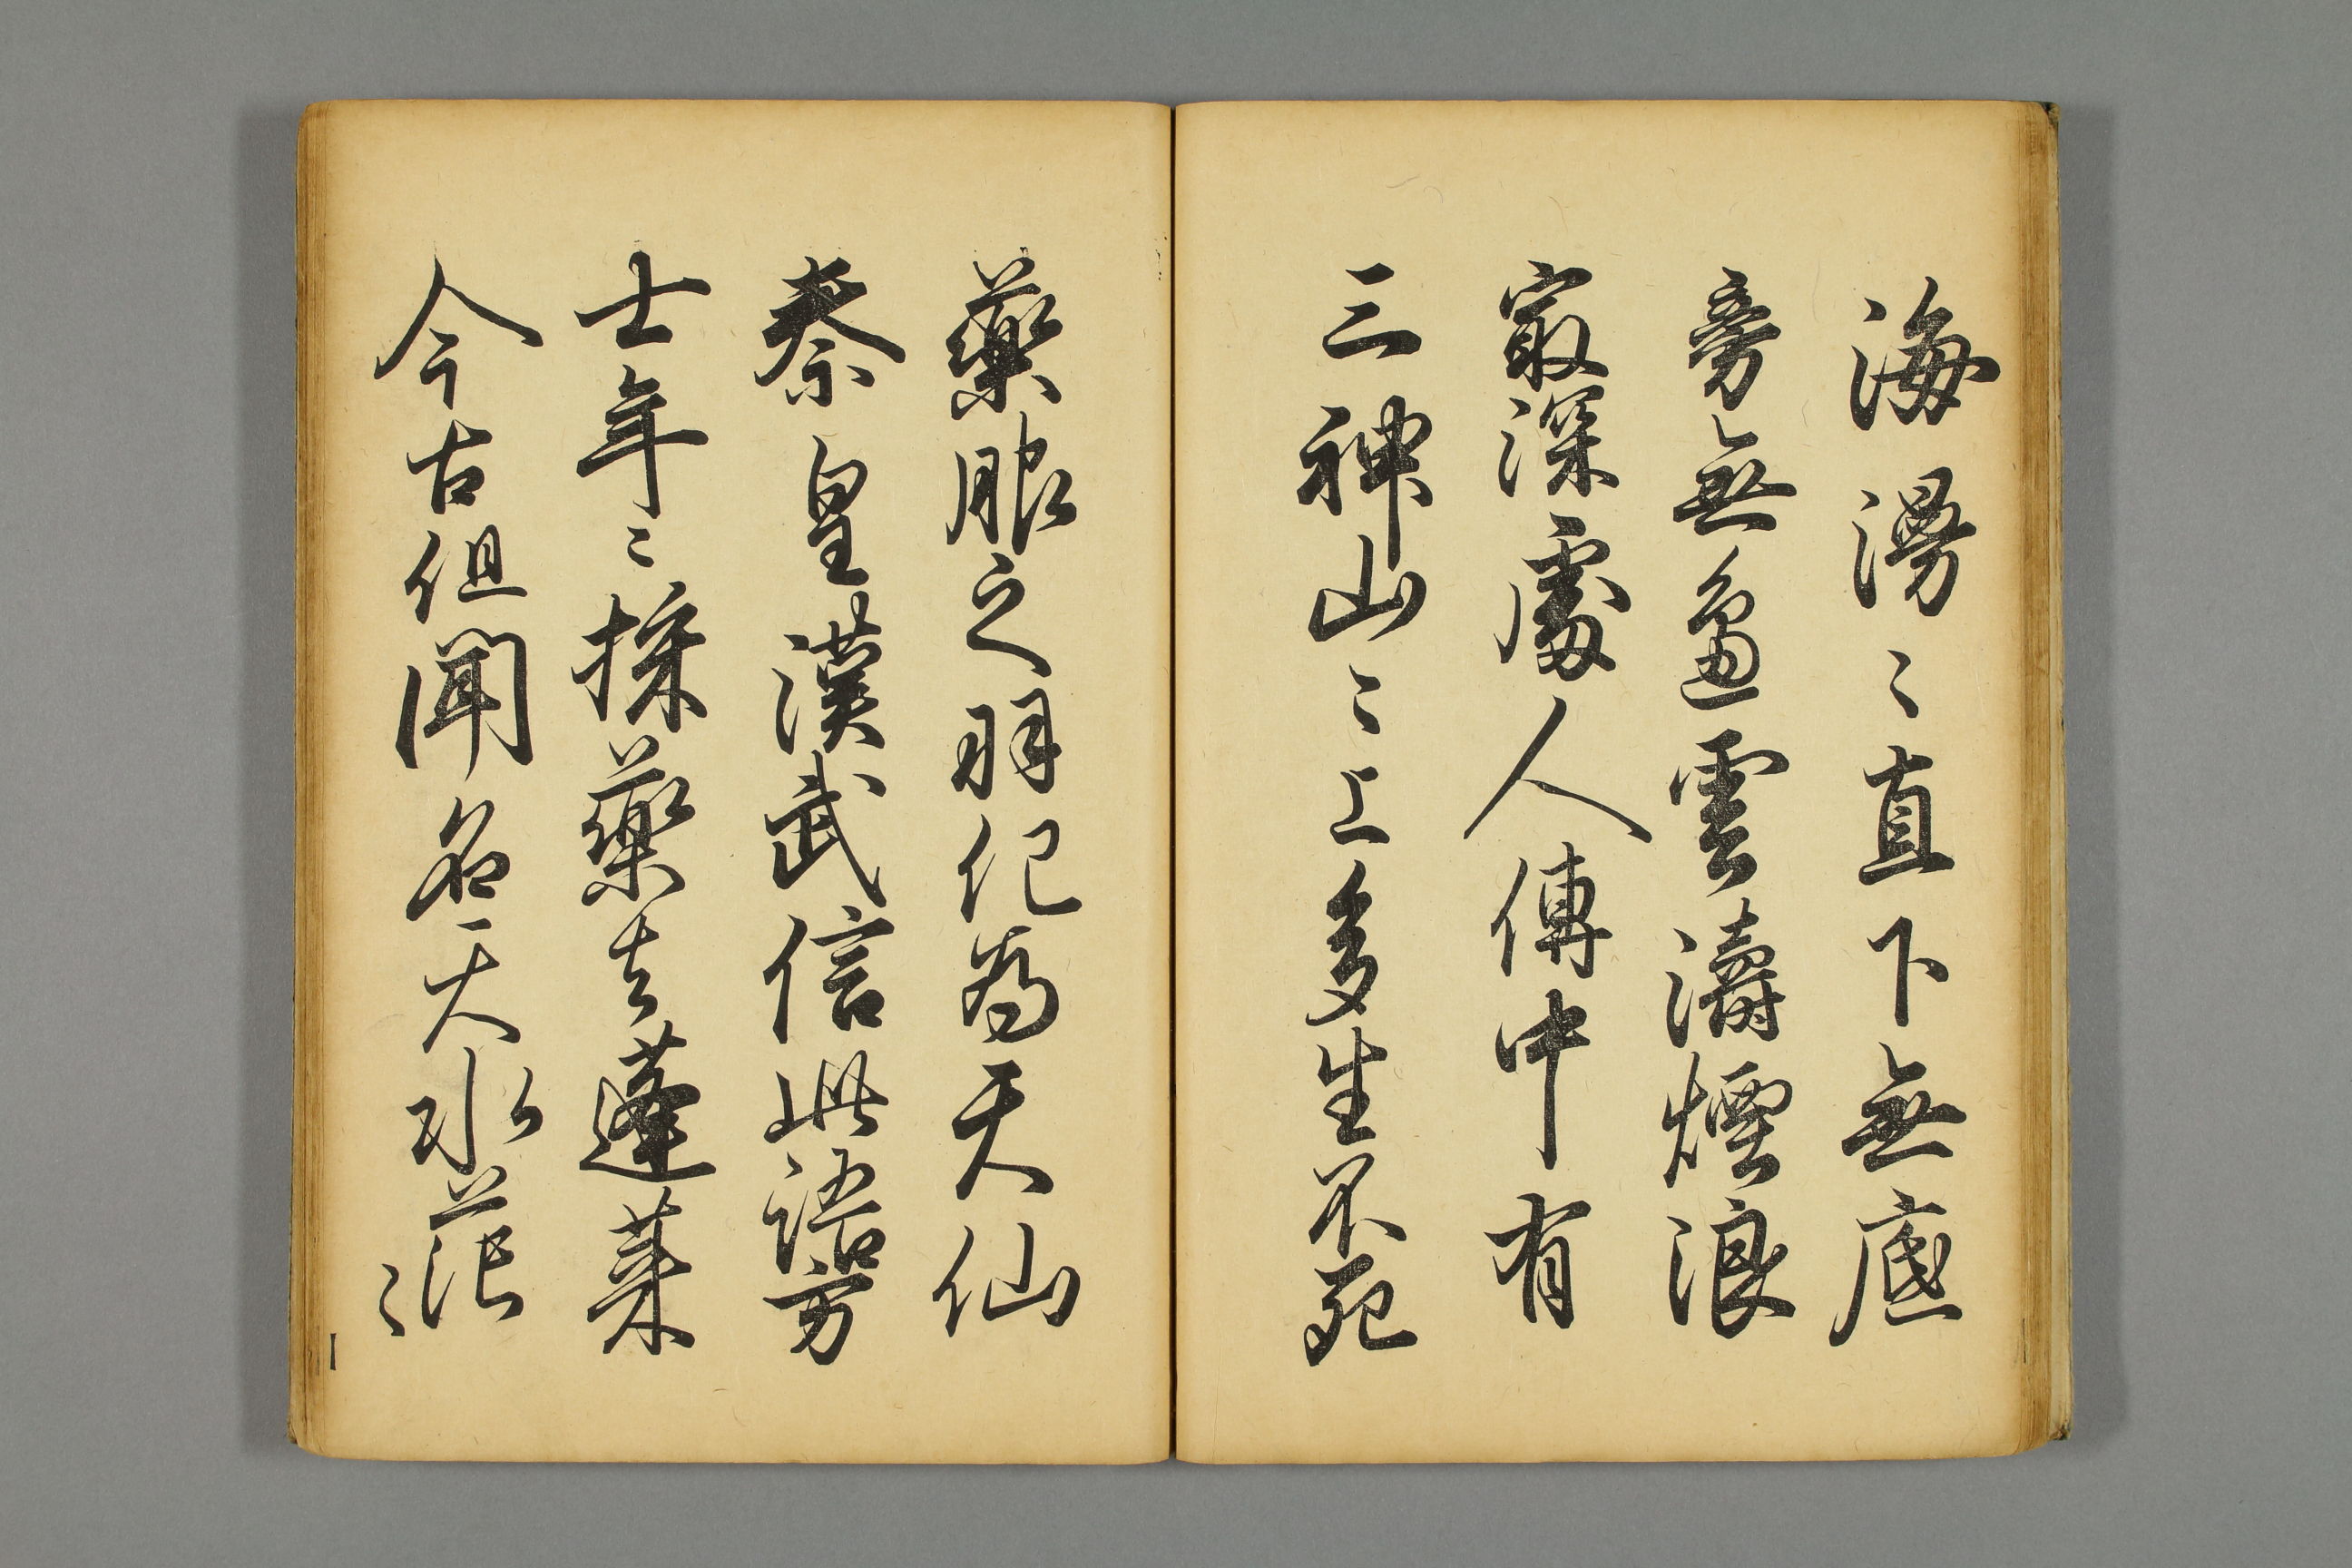 海漫〻直下無底
旁無邉雲濤煙浪
冣深處人傳中有
三神山〻上多生不死
藥服之羽化為天仙
秦皇漢武信此語方
士年〻採藥去蓬莱
今古但聞名天水茫
〻